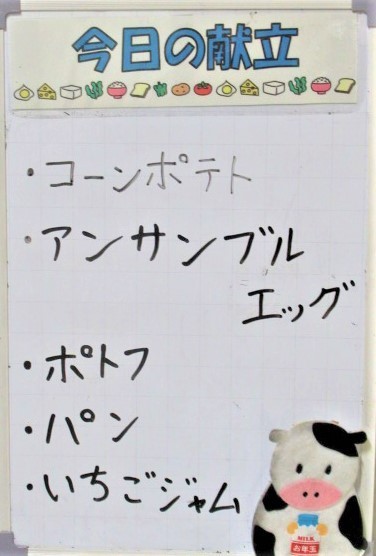 今日の献立
・コーンポテト
・アンサンブル
エッグ
・ポトフ
・パン
・いちごジャム
MILK
お年玉